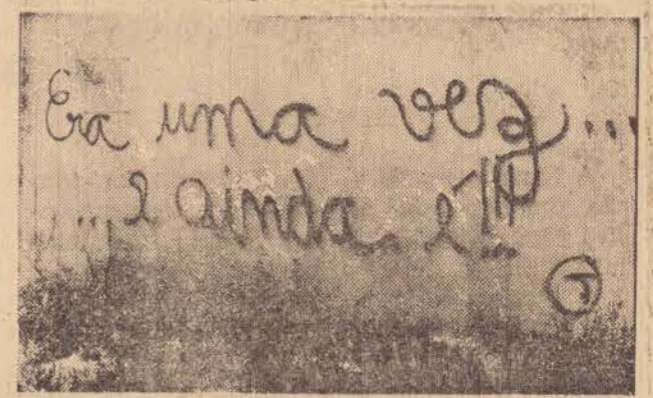 Era uma vez...
...e ainda é!!!